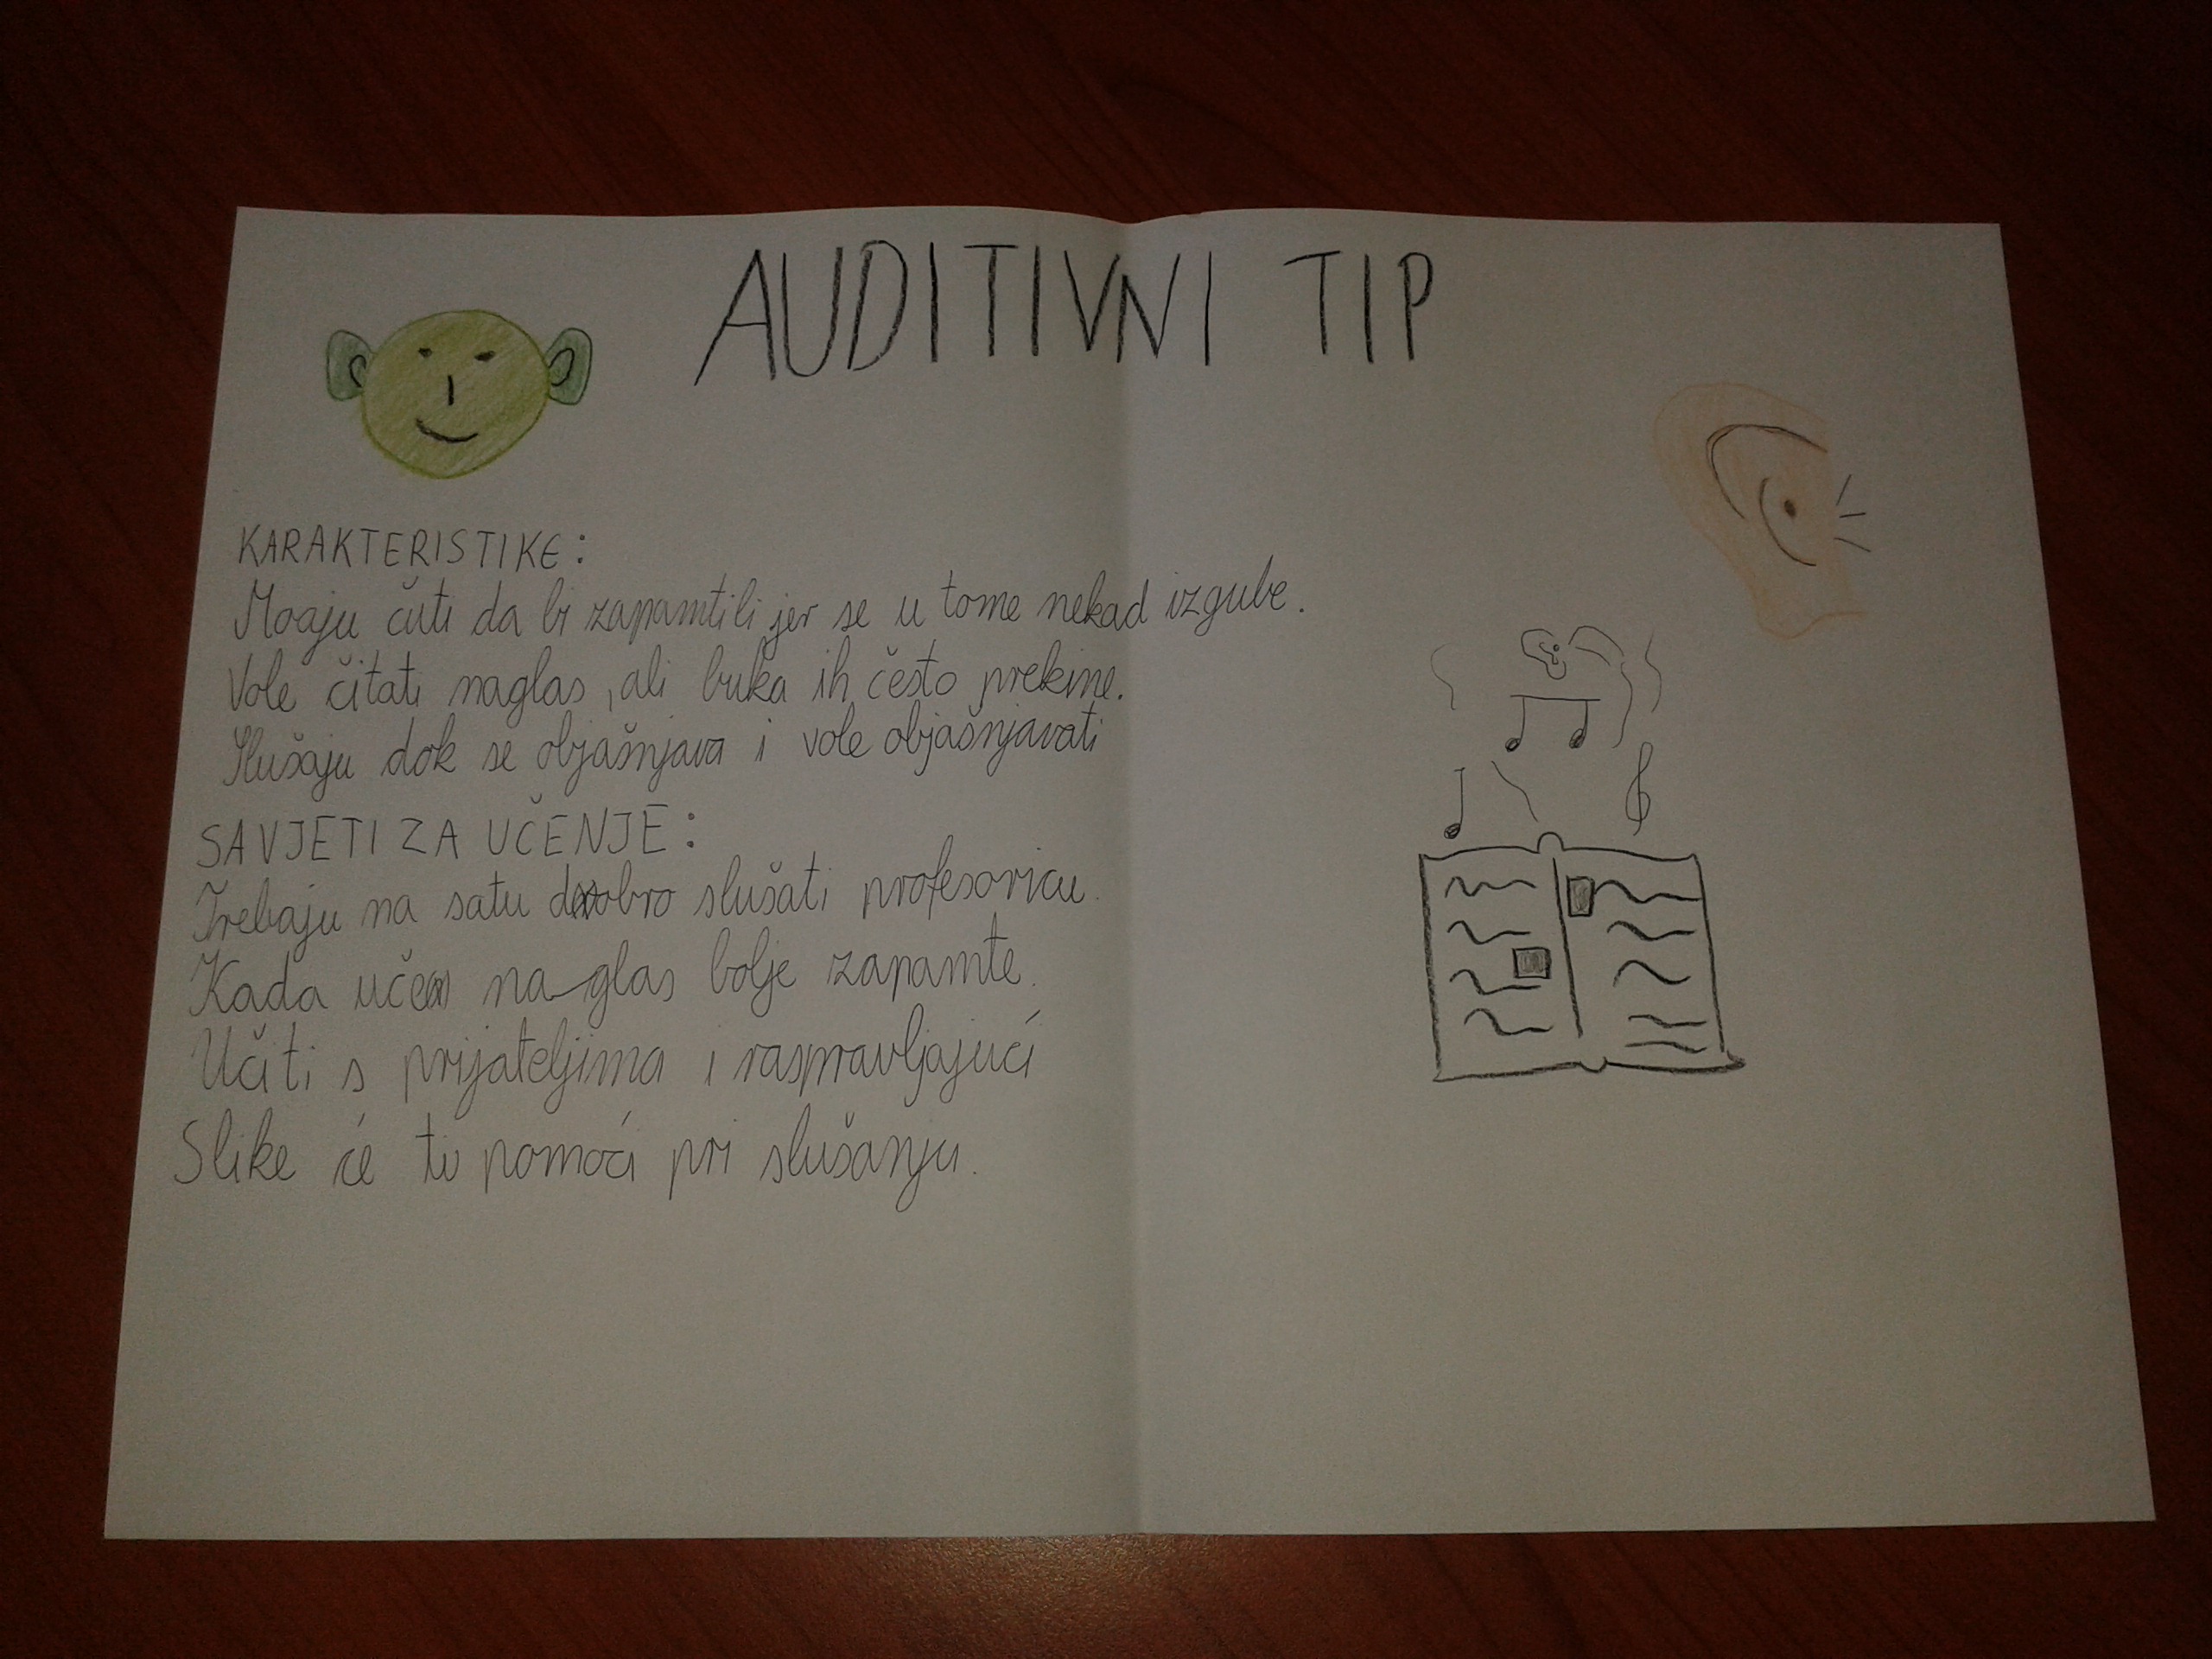 AUDITIVNI TIP
KARAKTERISTIKE:
Moaju čuti da bi zapamtili jer se u tome nekad izgube.
Vole čitati naglas, ali buka ih često prekine.
Slušaju dok se objašnjava i vole objašnjavati
SAVJETI ZA UČENJE:
Trebaju na satu dobro slušati profesoricu.
Kada uče na glas bolje zapamte.
Učiti s prijateljima i raspravljajući
Slike će ti pomoći pri slušanju.